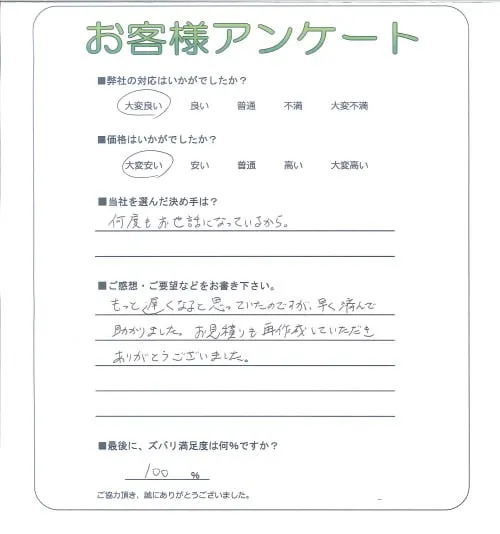 お客様アンケート
■弊社の対応はいかがでしたか？
大変良い 良い 普通 不満 大変不満
■価格はいかがでしたか？
大変安い 安い 普通 高い 大変高い
■当社を選んだ決め手は？
何度もお世話になっているから。
■ご感想・ご要望などをお書き下さい。
もっと遅くなると思っていたのですが、早く済んで
助かりました。お見積りも再作成していただき
ありがとうございました。
■最後に、ズバリ満足度は何%ですか？
100 %
ご協力頂き、誠にありがとうございました。